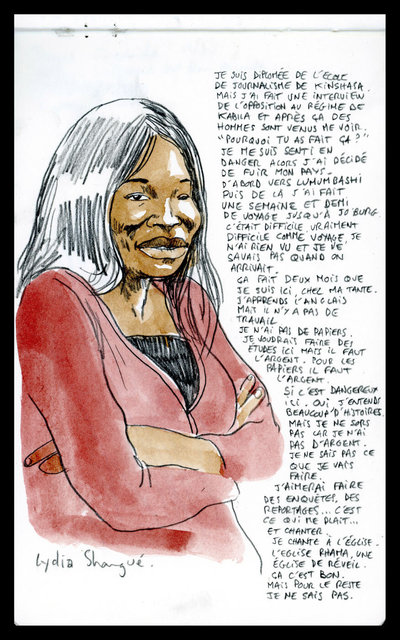 JE SUIS DIPLOMÉE DE L'ECOLE
DE JOURNALISME DE KINSHASA
MAIS J'AI FAIT UNE INTERVIEW
DE L'OPPOSITION AU RÉGIME DE
KABILA ET APRÈS ÇA DES
HOMMES SONT VENUS ME VOIR.
"POURQUOI TU AS FAIT ÇA?"
JE ME SUIS SENTI EN
DANGER ALORS J'AI DÉCIDÉ
DE FUIR MON PAYS.
D'ABORD VERS LUHUMBASHI
PUIS DE LÀ J'AI FAIT
UNE SEMAINE ET DEMI
DE VOYAGE JUSQU'À JO'BURG.
C'ÉTAIT DIFFICILE, VRAIMENT
DIFFICILE COMME VOYAGE, JE
N'AI RIEN VU ET JE NE
SAVAIS PAS QUAND ON
ARRIVAIT.
ÇA FAIT DEUX MOIS QUE
JE SUIS ICI, CHEZ MA TANTE.
J'APPRENDS L'ANGLAIS
MAIS IL N'Y A PAS DE
TRAVAIL
JE N'AI PAS DE PAPIERS.
JE VOUDRAIS FAIRE DES
ÉTUDES ICI MAIS IL FAUT
L'ARGENT. POUR LES
PAPIERS IL FAUT
L'ARGENT.
SI C'EST DANGEREUX
ICI. OUI J'ENTENDS
BEAUCOUP D'HISTOIRES
MAIS JE NE SORS
PAS CAR JE N'AI
PAS D'ARGENT.
JE NE SAIS PAS CE
QUE JE VAIS
FAIRE.
J'AIMERAI FAIRE
DES ENQUÊTES, DES
REPORTAGES... C'EST
CE QUI ME PLAIT...
ET CHANTER.
JE CHANTE À L'ÉGLISE.
L'EGLISE RHAMA, UNE
ÉGLISE DE RÉVEIL.
ÇA C'EST BON.
MAIS POUR LE RESTE
JE NE SAIS PAS.
Lydia Shangué.